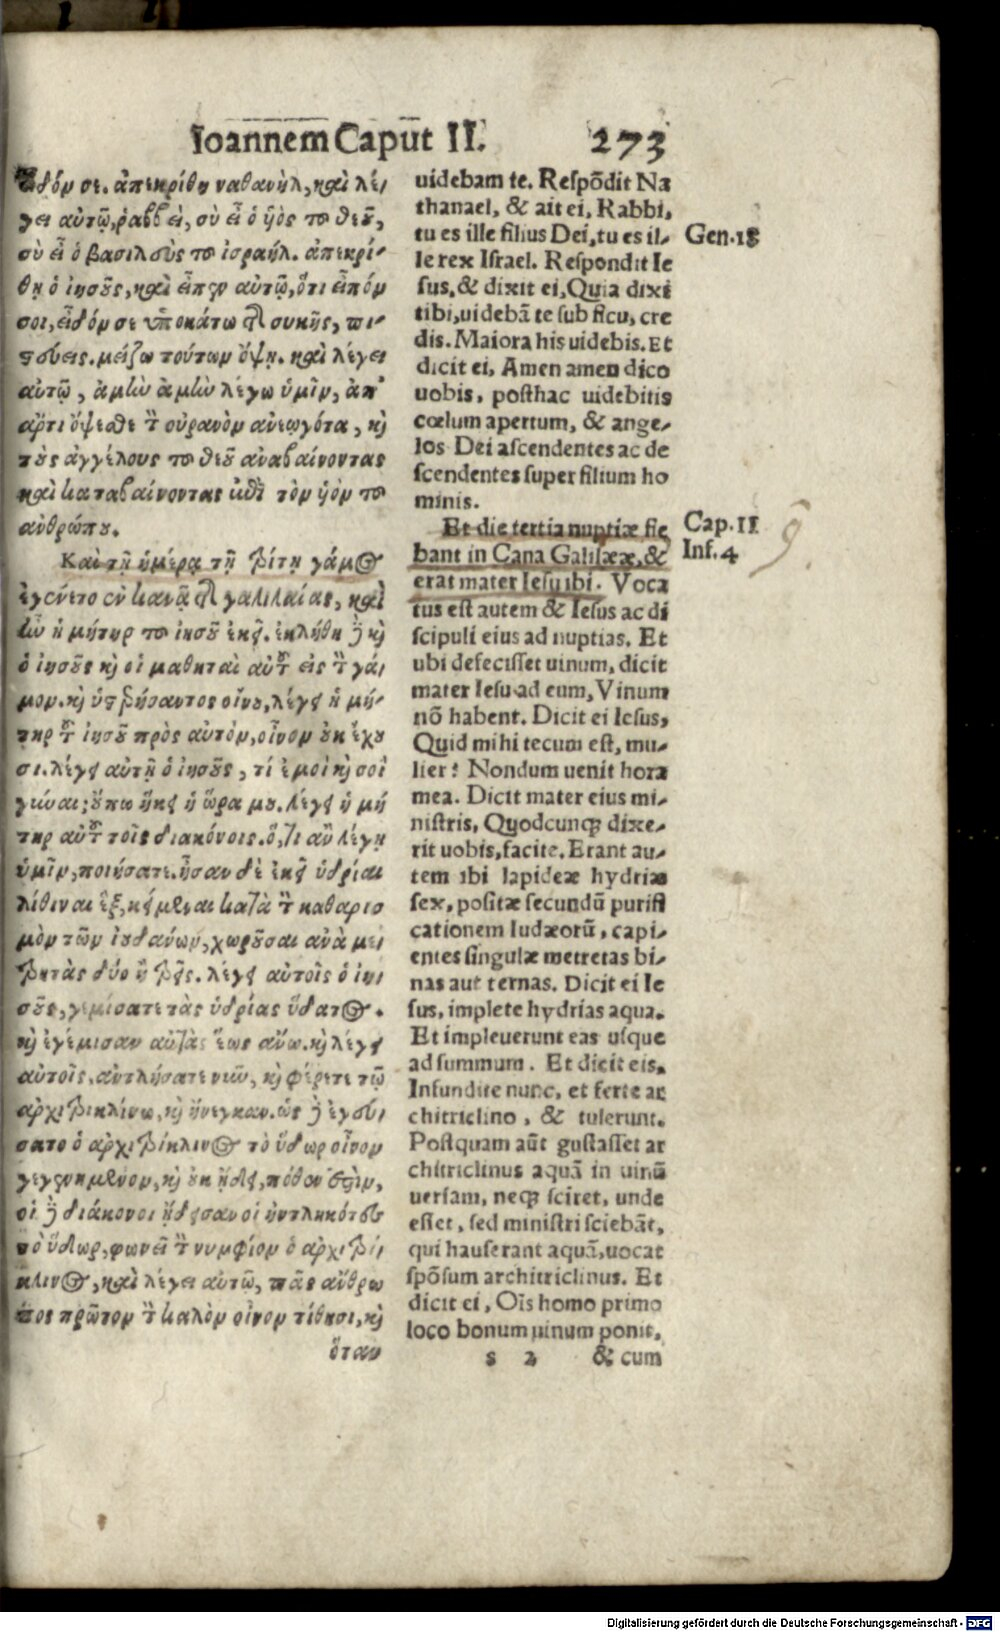 Ioannem Caput II. 273
εἶδόμ σε. ἀπεκρίθη ναθανὴλ, καὶ λέ/
γει αὐτῷ, ῥαββεὶ, σὺ εἶ ὁ ὑὸς τοῦ θεοῦ,
σὺ εἶ ὁ βασιλεὺς τοῦ ἰσραήλ. ἀπεκρί/
θη ὁ ἰησοῦς, καὶ εἶπεν αὐτῷ, ὅτι εἶπόμ
σοι, εἶδόμ σε ὑποκάτω τῆς συκῆς, πι/
στεύεις. μείζω τούτωμ ὄψη. καὶ λέγει
αὐτῷ, ἀμὴν ἀμὴν λέγω ὑμῖμ, ἀπ'
ἄρτι ὄψεσθε τὸν οὐρανὸμ ἀνεῳγότα, καὶ
τοὺς ἀγγέλους τοῦ θεοῦ ἀναβαίνοντας
καὶ καταβαίνοντας ἐπὶ τὸμ ὑὸμ τοῦ
ἀνθρώπου.
Καὶ τῇ ἡμέρᾳ τῇ τρίτῃ γάμος
ἐγένετο ἐν κανᾷ τῆς γαλιλαίας, καὶ
ἦν ἡ μήτηρ τοῦ ἰησοῦ ἐκεῖ. ἐκλήθη δὲ καὶ
ὁ ἰησοῦς καὶ οἱ μαθηταὶ αὐτοῦ εἰς τὸν γά/
μομ. καὶ ὑστερήσαντος οἴνου, λέγει ἡ μή/
τηρ τοῦ ἰησοῦ πρὸς αὐτόμ, οἶνομ οὐκ ἔχου
σι. λέγει αὐτῇ ὁ ἰησοῦς, τί ἐμοὶ καὶ σοὶ
γύναι; οὔπω ἥκει ἡ ὥρα μου. λέγει ἡ μή
τηρ αὐτοῦ τοῖς διακόνοις. ὅ,τι ἂν λέγῃ
ὑμῖμ, ποιήσατε. ἦσαν δὲ ἐκεῖ ὑδρίαι
λίθιναι ἓξ, κείμεναι κατὰ τὸν καθαρισ
μὸμ τῶμ ἰουδαίων, χωροῦσαι ἀνὰ με/
τρητὰς δύο ἢ τρεῖς. λέγει αὐτοῖς ὁ ἰη
σοῦς, γεμίσατε τὰς ὑδρίας ὕδατος.
καὶ ἐγέμισαν αὐτὰς ἕως ἄνω. καὶ λέγει
αὐτοῖς, ἀντλήσατε νῦν, καὶ φέρετε τῷ
ἀρχιτρικλίνω, καὶ ἤνεγκαν. ὡς δὲ ἐγεύ
σατο ὁ ἀρχιτρίκλινος τὸ ὕδωρ οἶνομ
γεγενημένομ, καὶ οὐκ ᾔδει, πόθεν ἐστὶμ,
οἱ δὲ διάκονοι ᾔδεισαν οἱ ἠντληκότες
τὸ ὕδωρ, φωνεῖ τὸν νυμφίομ ὁ ἀρχιτρί/
κλινος, καὶ λέγει αὐτῷ, πᾶς ἄνθρω
πος πρῶτομ τὸν καλὸμ οἶνομ τίθησι, καὶ
ὅταν
uidebam te. Respõdit Na
thanael, & ait ei, Rabbi,
tu es ille filius Dei, tu es il/
le rex Israel. Respondit Ie
sus, & dixit ei, Quia dixi
tibi, uidebã te sub ficu, cre
dis. Maiora his uidebis. Et
dicit ei, Amen amen dico
uobis, posthac uidebitis
cœlum apertum, & ange/
los Dei ascendentes ac de
scendentes super filium ho
minis.
Et die tertia nuptiæ fie
bant in Cana Galilææ, &
erat mater Iesu ibi. Voca
tus est autem & Iesus ac di
scipuli eius ad nuptias. Et
ubi defecisset uinum, dicit
mater Iesu ad eum, Vinum
nõ habent. Dicit ei Iesus,
Quid mihi tecum est, mu/
lier? Nondum uenit hora
mea. Dicit mater eius mi/
nistris, Quodcunq; dixe/
rit uobis, facite. Erant au/
tem ibi lapideæ hydriæ
sex, positæ secundũ purifi
cationem Iudæorũ, capi/
entes singulæ metretas bi/
nas aut ternas. Dicit ei Ie
sus, implete hydrias aqua.
Et impleuerunt eas usque
ad summum. Et dicit eis,
Infundite nunc, et ferte ar
chitriclino, & tulerunt.
Postquam aũt gustasset ar
chitriclinus aquã in uinũ
uersam, neq; sciret, unde
esset, sed ministri sciebãt,
qui hauserant aquã, uocat
spõsum architriclinus. Et
dicit ei, Oĩs homo primo
loco bonum uinum ponit,
s 2 & cum
Gen.18
Cap. II
Inf. 4
Digitalisierung gefördert durch die Deutsche Forschungsgemeinschaft - DFG